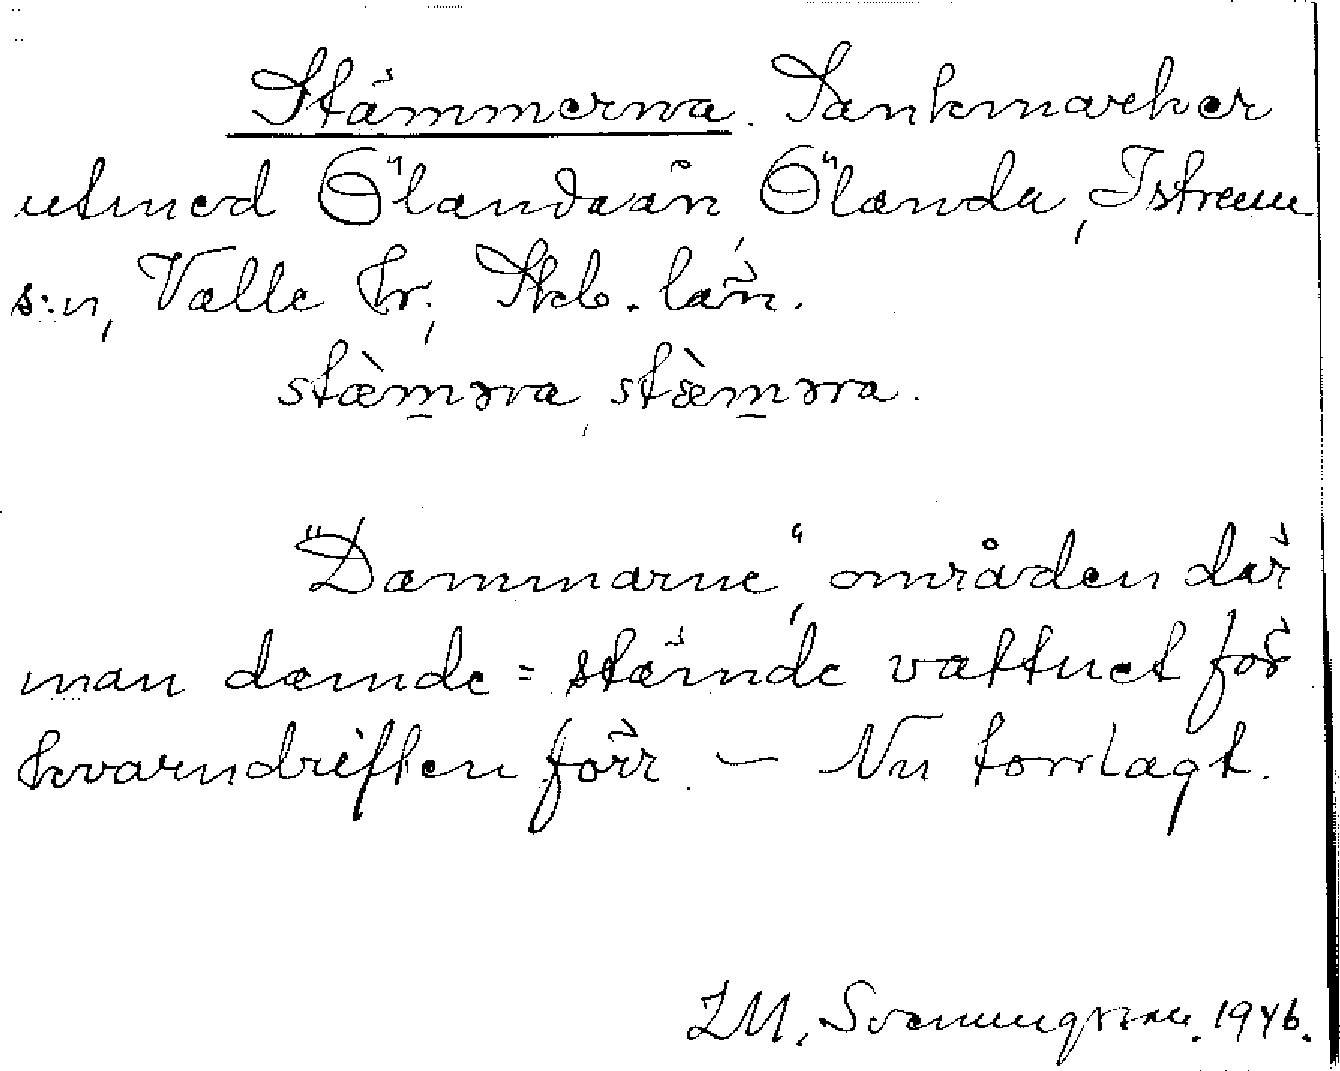 Stämmerna. Sankmarker
utmed Ölandaån, Ölanda, Istrum
s:n, Valle hr, Skb. län.
stæ̀m̲əra, stæ̀m̲əra.
"Dammarne", områden där
man dämde = stämde vattnet för
kvarndriften förr. — Nu torrlagt.
LM. Svenungsson. 1946.